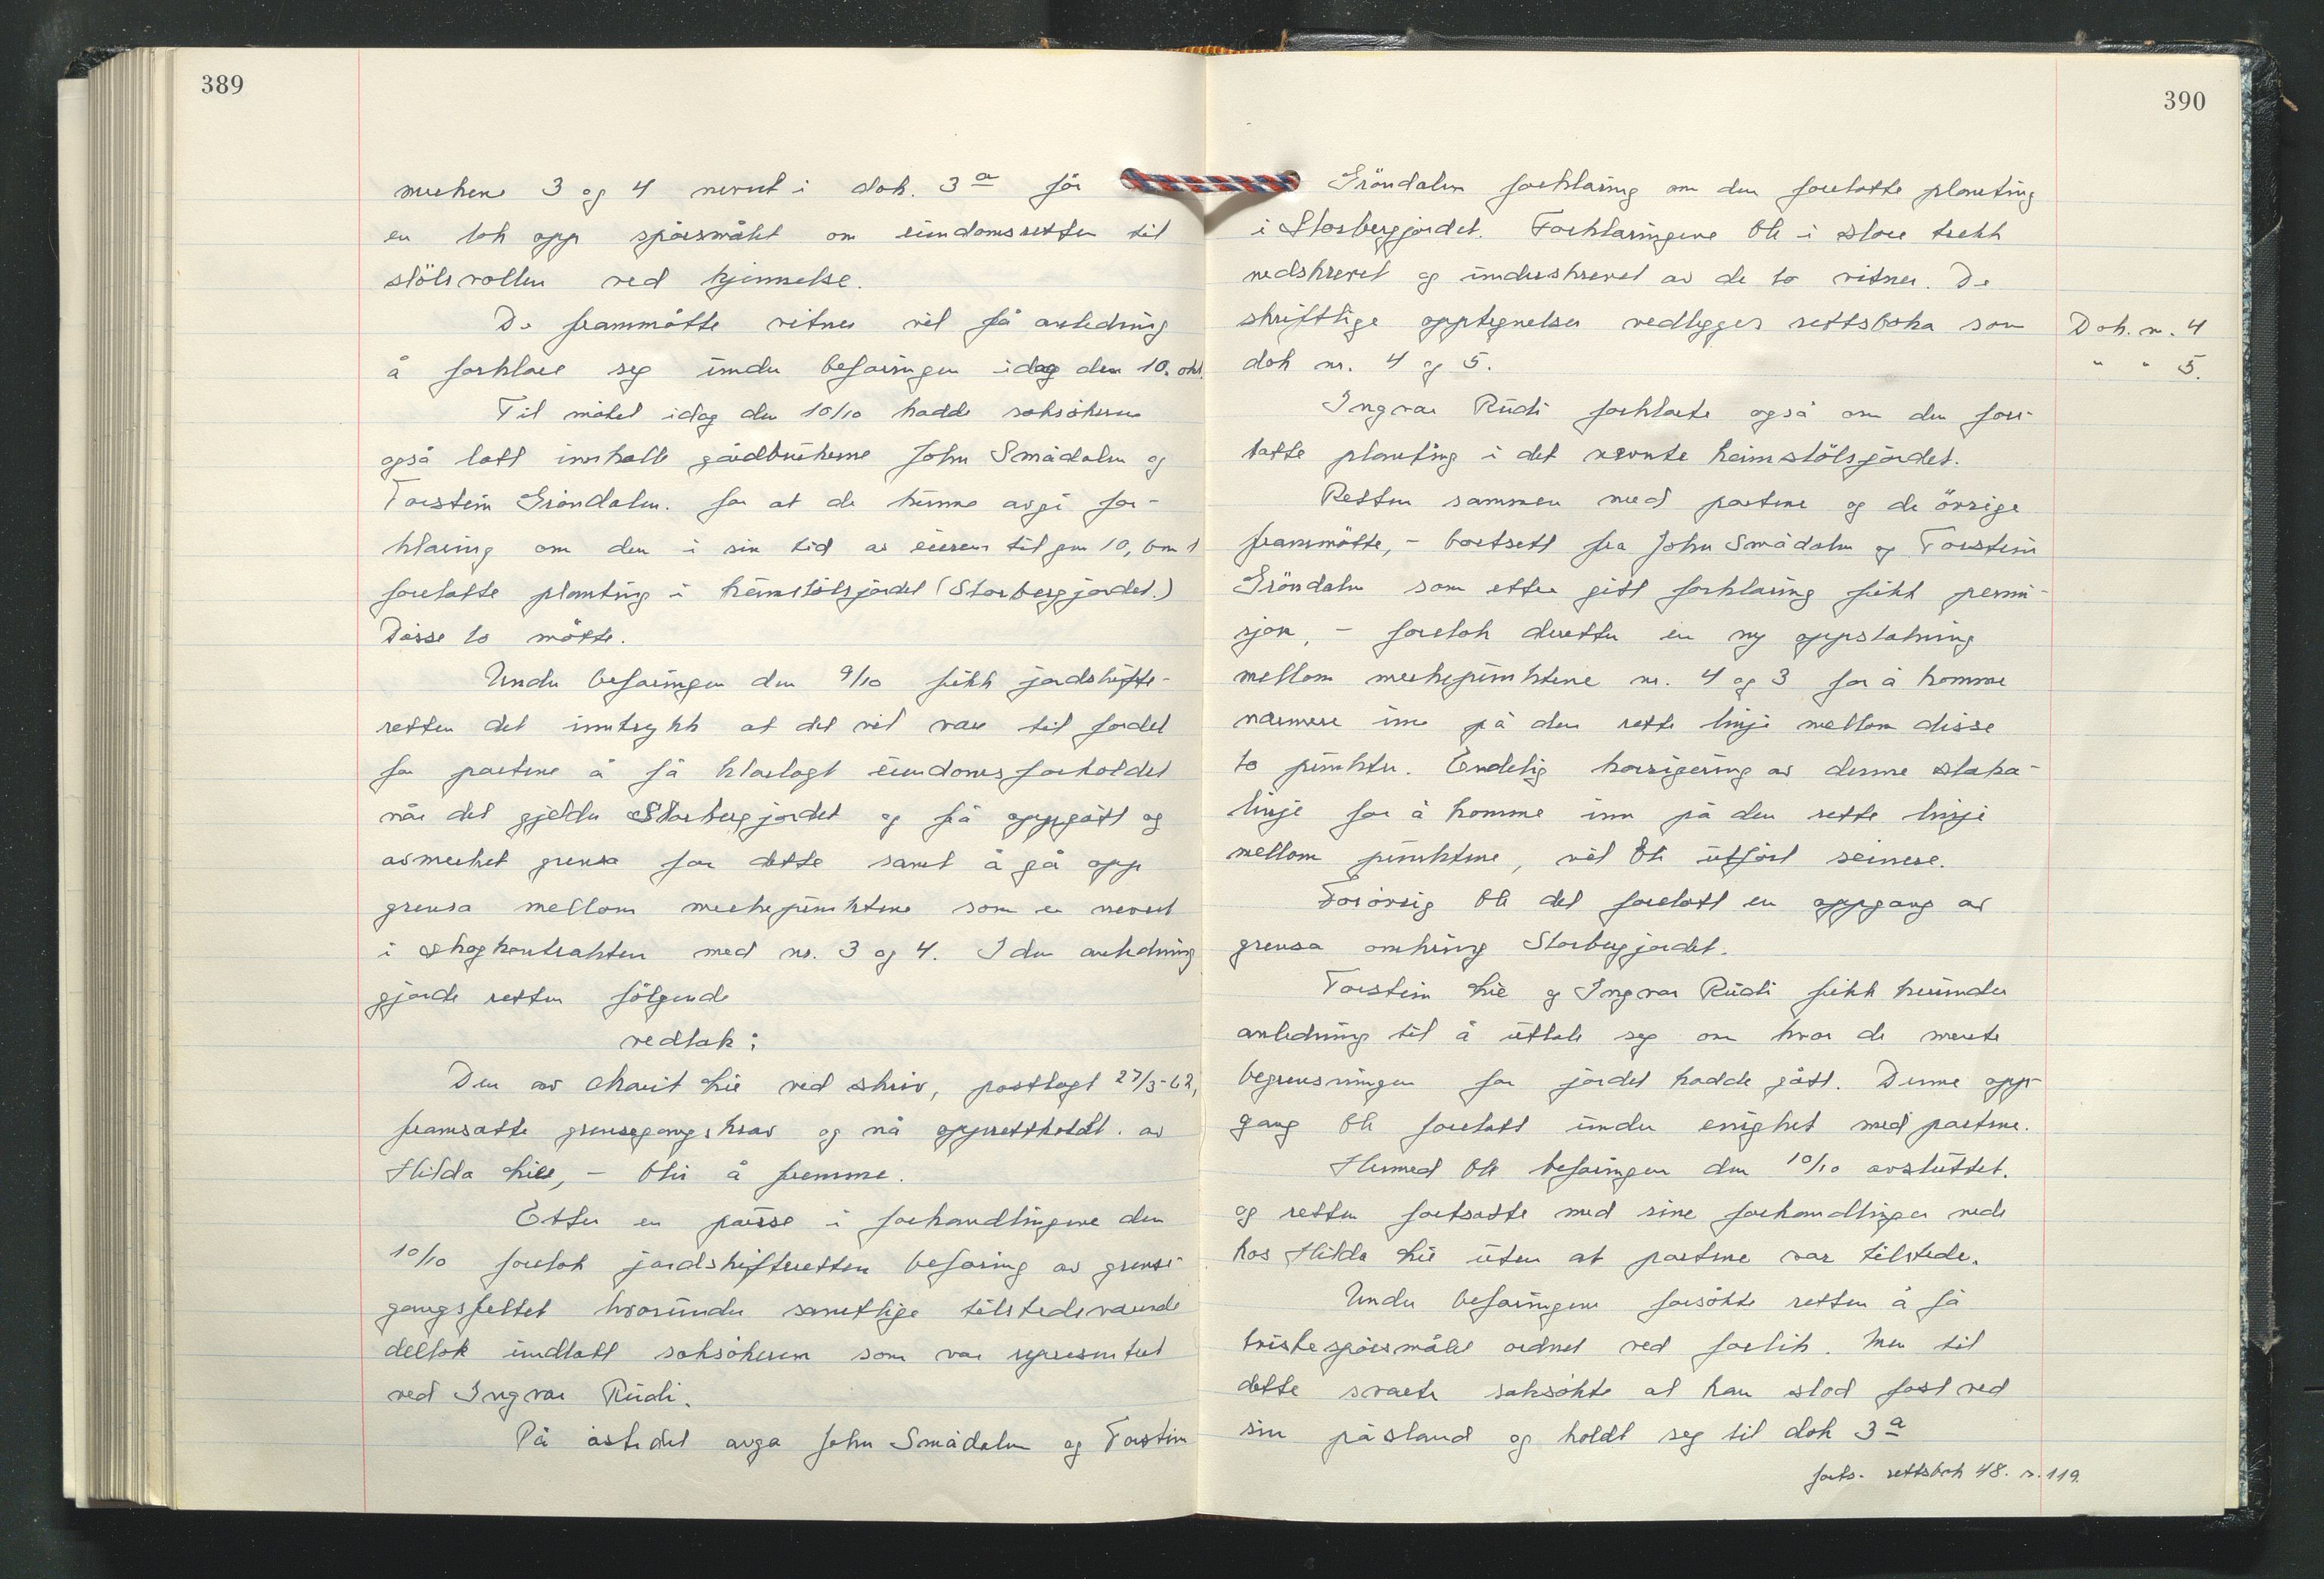 389
merkene 3 og 4 nevnt i dok. 3a før
en tok opp spørsmålet om eiendomsretten til
stölsvollen ved kjennelse.
De frammøtte vitner vil få anledning
å forklare seg under befaringen idag den 10. okt.
Til møtet idag den 10/10 hadde saksøkeren
også latt innkalle gårdbrukerne John Smådalen og
Torstein Gröndalen. for at de kunne avgi for-
klaring om den i sin tid av eieren til gnr 10, bnr 1
foretatte planting i heimstölsjordet (Storbergjordet.)
Disse to møtte.
Under befaringen den 9/10 fikk jordskifte-
retten det inntrykk at det vil være til fordel
for partene å få klarlagt eiendomsforholdet
når det gjelder Storbergjordet og få oppgått og
avmerket grensa for dette samt å gå opp
grensa mellom merkepunktene som er nevnt
i skogkontrakten med nr. 3 og 4. I den anledning
gjorde retten følgende
vedtak:
Den av Marit Lie ved skriv, postlagt 27/3-62,
framsatte grensegangskrav og nå opprettholdt. av
Hilda Lie, - blir å fremme.
Etter en pause i forhandlingene den
10/10 foretok jordskifteretten befaring av grense-
gangsfeltet hvorunder samtlige tilstedeværende
deltok undtatt saksøkeren som var representert
ved Ingvar Rudi.
På åstedet avga John Smådalen og Torstein
390
Gröndalen forklaring om den foretatte planting
i Storbergjordet. Forklaringene ble i store trekk
nedskrevet og underskrevet av de to vitner. De
skriftlige opptegnelser vedlegges rettsboka som
Dok. nr. 4
dok nr. 4 og 5.
" " 5.
Ingvar Rudi forklarte også om den fore-
tatte planting i det nevnte heimstölsjordet.
Retten sammen med partene og de øvrige
frammøtte, - bortsett fra John Smådalen og Torstein
Gröndalen som etter gitt forklaring fikk permi-
sjon, - foretok deretter en ny oppstakning
mellom merkepunktene nr. 4 og 3 for å komme
nærmere inn på den rette linje mellom disse
to punkter. Endelig korrigering av denne staka-
linje for å komme inn på den rette linje
mellom punktene, vil bli utført seinere.
Forøvrig ble det foretatt en oppgang av
grensa omkring Storbergjordet.
Torstein Lie og Ingvar Rudi fikk herunder
anledning til å uttale seg om hvor de mente
begrensningen for jordet hadde gått. Denne opp-
gang ble foretatt under enighet med partene.
Hermed ble befaringen den 10/10 avsluttet.
og retten fortsatte med sine forhandlinger nede
hos Hilda Lie uten at partene var tilstede.
Under befaringene forsøkte retten å få
tvistespørsmålet ordnet ved forlik. Men til
dette svarte saksøkte at han stod fast ved
sin påstand og holdt seg til dok 3a
forts. rettsbok 48. s. 119.